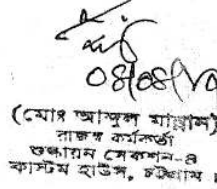 ০৪/০৪/
(মোঃ আব্দুল মান্নান)
রাজস্ব কর্মকর্তা
শুল্কায়ন সেকশন-৪
কাস্টম হাউস, চট্টগ্রাম।